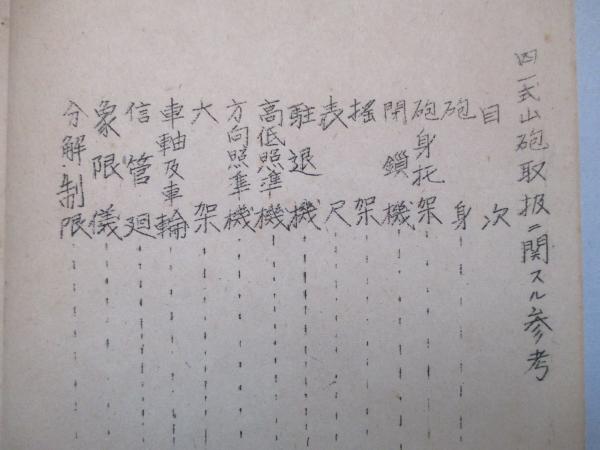 四一式山砲取扱ニ関スル参考
目次
砲身
砲身托架
閉鎖機
揺架
表尺
駐退機
高低照準機
方向照準機
大架
車軸及車輪
信管廻
象限儀
分解制限